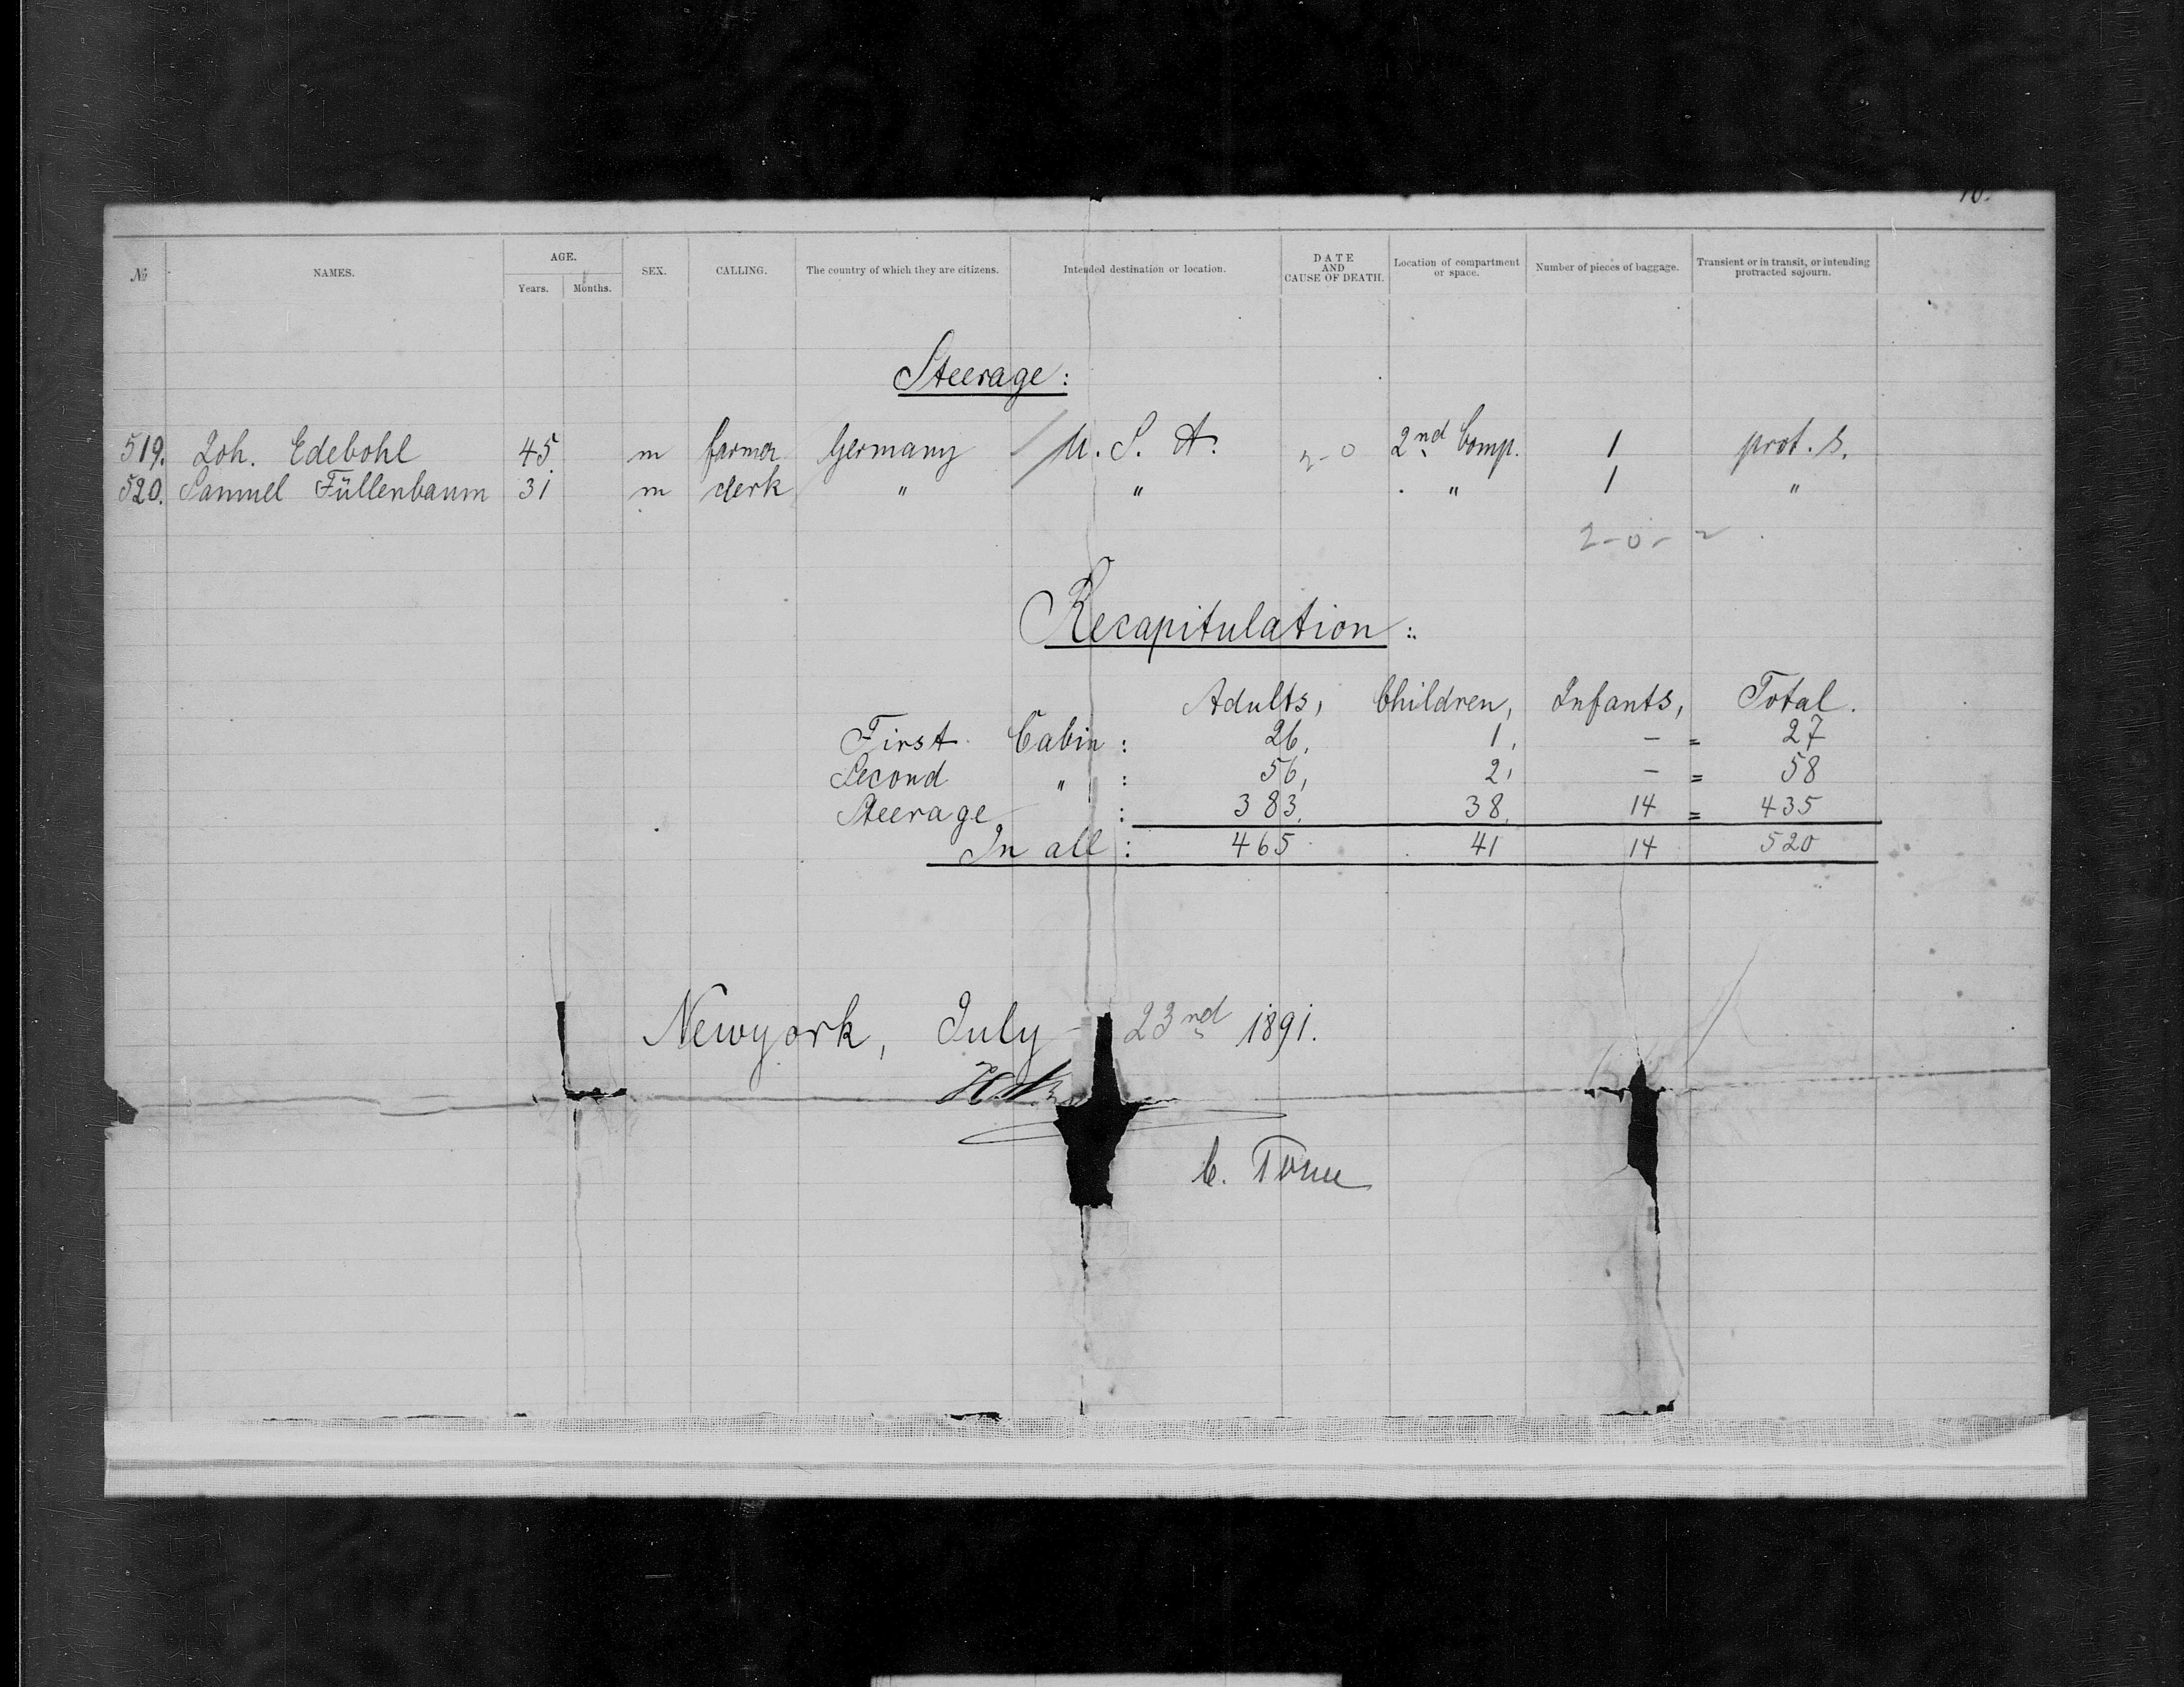 10.
№ NAMES. AGE. Years. Months. SEX. CALLING. The country of which they are citizens. Intended destination or location. DATE AND CAUSE OF DEATH. Location of compartment or space. Number of pieces of baggage. Transient or in transit, or intending protracted sojourn.
Steerage:
519. Joh. Edebohl 45 m farmer Germany U. S. A. 2-0 2nd Comp. 1 prot. s.
520. Samuel Füllenbaum 31 m clerk " " " 1 "
2-0-2
Recapitulation:
Adults, Children, Infants, Total.
First Cabin: 26, 1, - = 27
Second " : 56, 2, - = 58
Steerage : 383, 38, 14 = 435
In all: 465 41 14 520
Newyork, July 23nd 1891.
C.